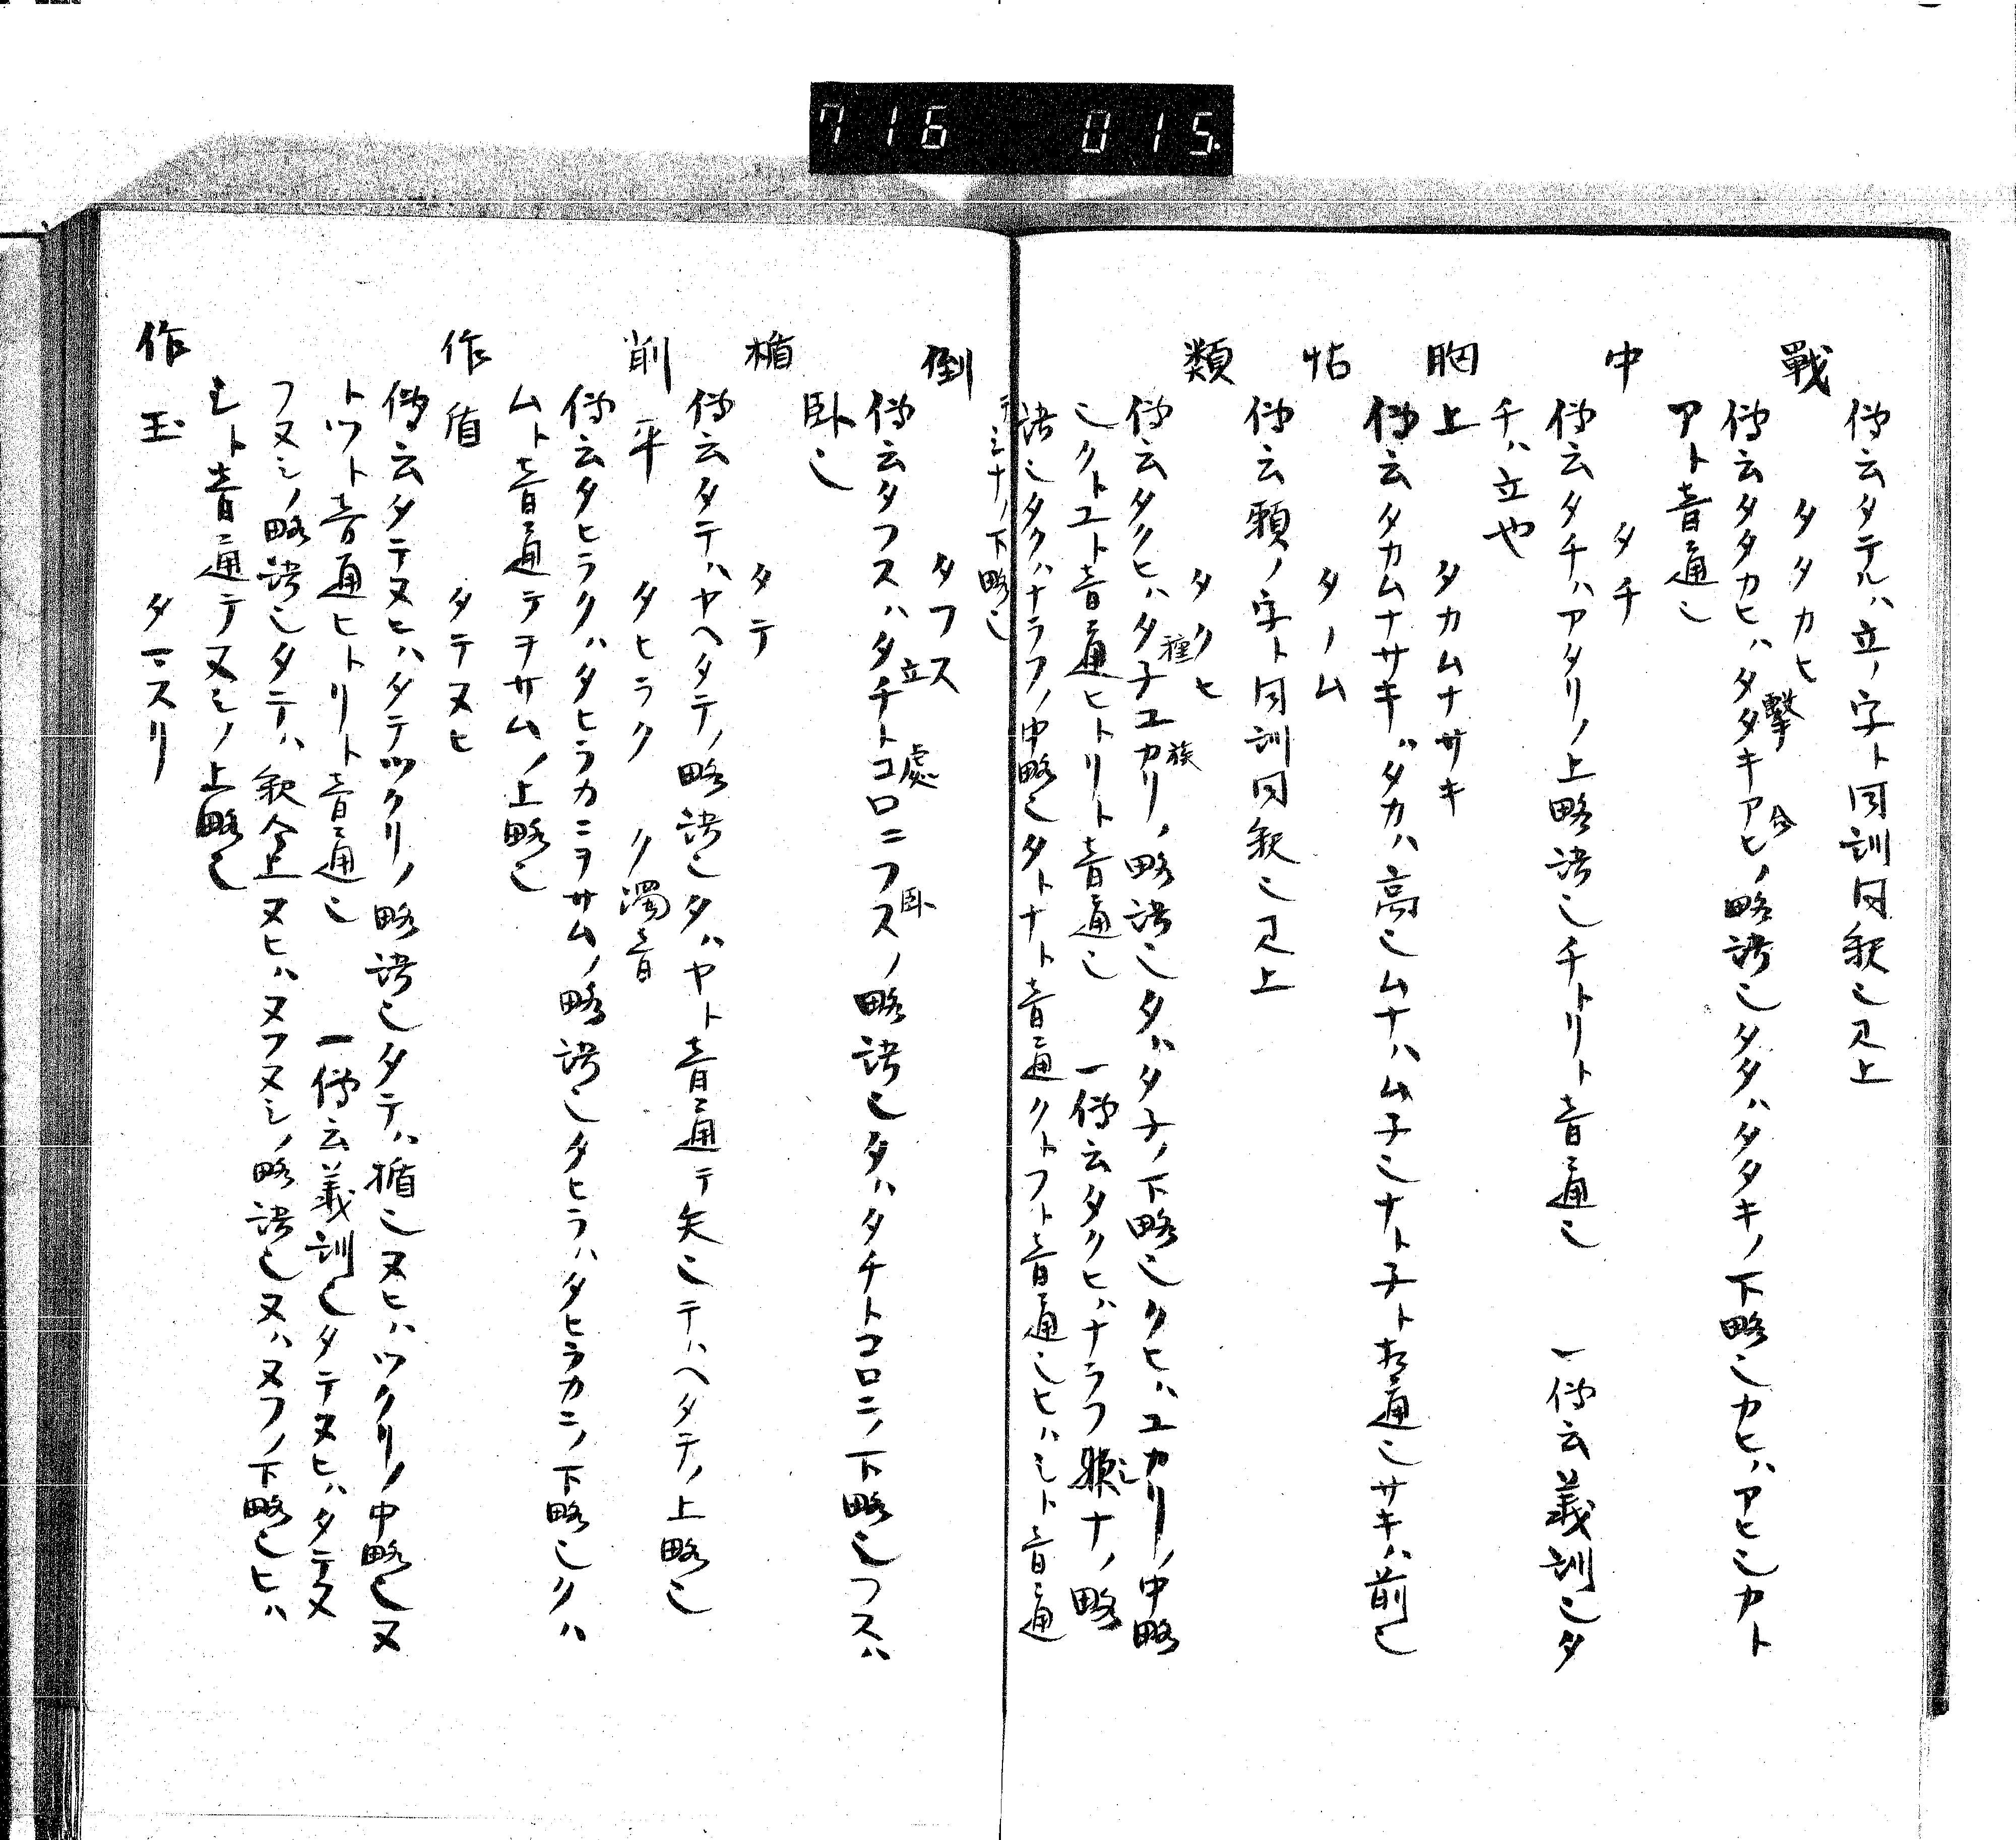 716 015.
傳云タテルハ立ノ字ト同訓同釈也見上
戰 タタカヒ
傳云タタカヒハタタキアヒノ略語也タタハタタキノ下略也カヒハアヒ也カト
擊 合
アト音通也
中 タチ
傳云タチハアタリノ上略語也チトリト音通也 一傳云義訓也タ
チハ立也
胸上 タカムナサキ
傳云タカムナサキハタカハ高也ムナハム子也ナト子ト音通也サキハ前也
怙 タノム
傳云賴ノ字ト同訓同釈也見上
類 タクヒ
傳云タクヒハタ子ユカリノ略語也タハタ子ノ下略也クヒハユカリノ中略
種 族
也クトユト音通ヒトリト音通也 一傳云タクヒハナラフ ナノ略
語也タクハナラフノ中略也タトナト音通クトフト音通也ヒハミト音通
テミナノ下略也
倒 タフス
傳云タフスハタチトコロニフスノ略語也タハタチトコロニノ下略也フスハ
立 處 臥
臥也
楯 タテ
傳云タテハヤヘタテノ略語也タハヤト音通テ矢也テハヘタテノ上略也
削平 タヒラク ク濁音
傳云タヒラクハタヒラカニヲサムノ略語也タヒラハタヒラカニノ下略也クハ
ムト音通テヲサムノ上略也
作盾 タテヌヒ
傳云タテヌヒハタテツクリノ略語也タテハ楯也ヌヒハツクリノ中略也ヌ
トツト音通ヒトリト音通也 一傳云義訓也タテヌヒハタテヌ
フヌシノ略語也タテハ釈全上ヌヒハヌフヌシノ略語也ヌハヌフノ下略也ヒハ
シト音通テヌシノ上略也
作玉 タマスリ